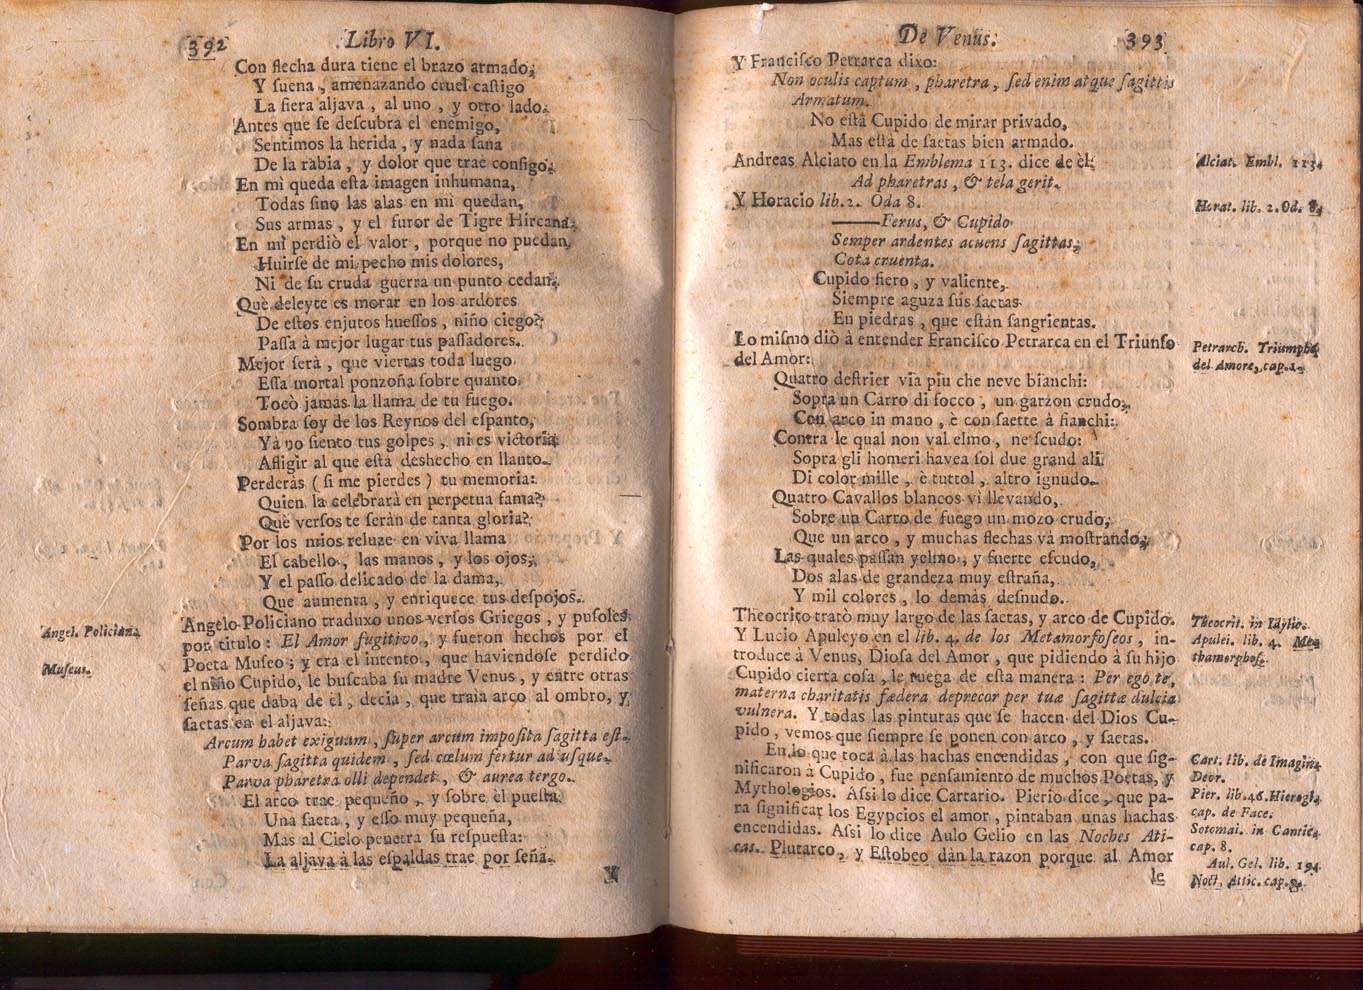 392 Libro VI.
Con flecha dura tiene el brazo armado;
Y ſuena, amenazando cruel caſtigo
La fiera aljava, al uno, y otro lado.
Antes que ſe deſcubra el enemigo,
Sentimos la herida, y nada ſana
De la rabia, y dolor que trae conſigo.
En mì queda eſta imagen inhumana,
Todas ſino las alas en mi quedan,
Sus armas, y el furor de Tigre Hircana;
En mì perdiò el valor, porque no puedan,
Huirſe de mi pecho mis dolores,
Ni de ſu cruda guerra un punto cedan.
Què deleyte es morar en los ardores
De eſtos enjutos hueſſos, niño ciego?
Paſſa à mejor lugar tus paſſadores.
Mejor ſerà, que viertas toda luego
Eſſa mortal ponzoña ſobre quanto
Tocò jamas la llama de tu fuego.
Sombra ſoy de los Reynos del eſpanto,
Yà no ſiento tus golpes, ni es victoria
Afligir al que eſta deshecho en llanto.
Perderàs (ſi me pierdes) tu memoria:
Quien la celebrarà en perpetua fama?
Què verſos te ſeràn de tanta gloria?
Por los mios reluze en viva llama
El cabello, las manos, y los ojos;
Y el paſſo delicado de la dama,
Que aumenta, y enriquece tus deſpojos.
Angelo Policiano traduxo unos verſos Griegos, y puſoles
por titulo: El Amor fugitivo, y fueron hechos por el
Poeta Muſeo; y era el intento, que haviendoſe perdido
el niño Cupido, le buſcaba ſu madre Venus, y entre otras
ſeñas que daba de èl, decia, que traìa arco al ombro, y
ſaetas en el aljava:
Arcum habet exiguum, ſuper arcum impoſita ſagitta eſt.
Parva ſagitta quidem, ſed cœlum fertur ad uſque.
Parva pharetra olli dependet, & aurea tergo.
El arco trae pequeño, y ſobre èl pueſta
Una ſaeta, y eſſo muy pequeña,
Mas al Cielo penetra ſu reſpueſta:
La aljava à las eſpaldas trae por ſeña.
Y
Angel. Policiano
Muſeus.
De Venus. 393
Y Franciſco Petrarca dixo:
Non oculis captum, pharetra, ſed enim atque ſagittis
Armatum.
No eſtà Cupido de mirar privado,
Mas eſtà de ſaetas bien armado.
Andreas Alciato en la Emblema 113. dice de èl:
Ad pharetras, & tela gerit.
Y Horacio lib. 2. Oda 8.
——Ferus, & Cupido
Semper ardentes acuens ſagittas,
Cota cruenta.
Cupido fiero, y valiente,
Siempre aguza ſus ſaetas
En piedras, que eſtán ſangrientas.
Lo miſmo diò à entender Franciſco Petrarca en el Triunfo
del Amor:
Quatro deſtrier via piu che neve bianchi:
Sopra un Carro di focco, un garzon crudo,
Con arco in mano, è con ſaette à fianchi:
Contra le qual non val elmo, ne ſcudo:
Sopra gli homeri havea ſol due grand ali
Di color mille, è tuttol, altro ignudo.
Quatro Cavallos blancos vi llevando,
Sobre un Carro de fuego un mozo crudo,
Que un arco, y muchas flechas và moſtrando;
Las quales paſſan yelmo, y fuerte eſcudo,
Dos alas de grandeza muy eſtraña,
Y mil colores, lo demás deſnudo.
Theocrito tratò muy largo de las ſaetas, y arco de Cupido.
Y Lucio Apuleyo en el lib. 4. de los Metamorfoſeos, in-
troduce à Venus, Dioſa del Amor, que pidiendo à ſu hijo
Cupido cierta coſa, le ruega de eſta manera: Per ego te,
materna charitatis fædera deprecor per tuæ ſagittæ dulcia
vulnera. Y todas las pinturas que ſe hacen del Dios Cu-
pido, vemos que ſiempre ſe ponen con arco, y ſaetas.
En lo que toca à las hachas encendidas, con que ſig-
nificaron à Cupido, fue penſamiento de muchos Poetas, y
Mythologios. Aſſi lo dice Cartario. Pierio dice, que pa-
ra ſignificar los Egypcios el amor, pintaban unas hachas
encendidas. Aſſi lo dice Aulo Gelio en las Noches Ati-
cas. Plutarco, y Eſtobeo dàn la razon porque al Amor
le
Alciat. Embl. 113.
Horat. lib. 2. Od. 8.
Petrarch. Triumpho
del Amore, cap. 1.
Theocrit. in Idylio.
Apulei. lib. 4. Me-
thamorphoſ.
Cart. lib. de Imagin.
Deor.
Pier. lib. 46. Hierogl.
cap. de Face.
Sotomai. in Cantic.
cap. 8.
Aul. Gel. lib. 19.
Noct. Attic. cap. 9.